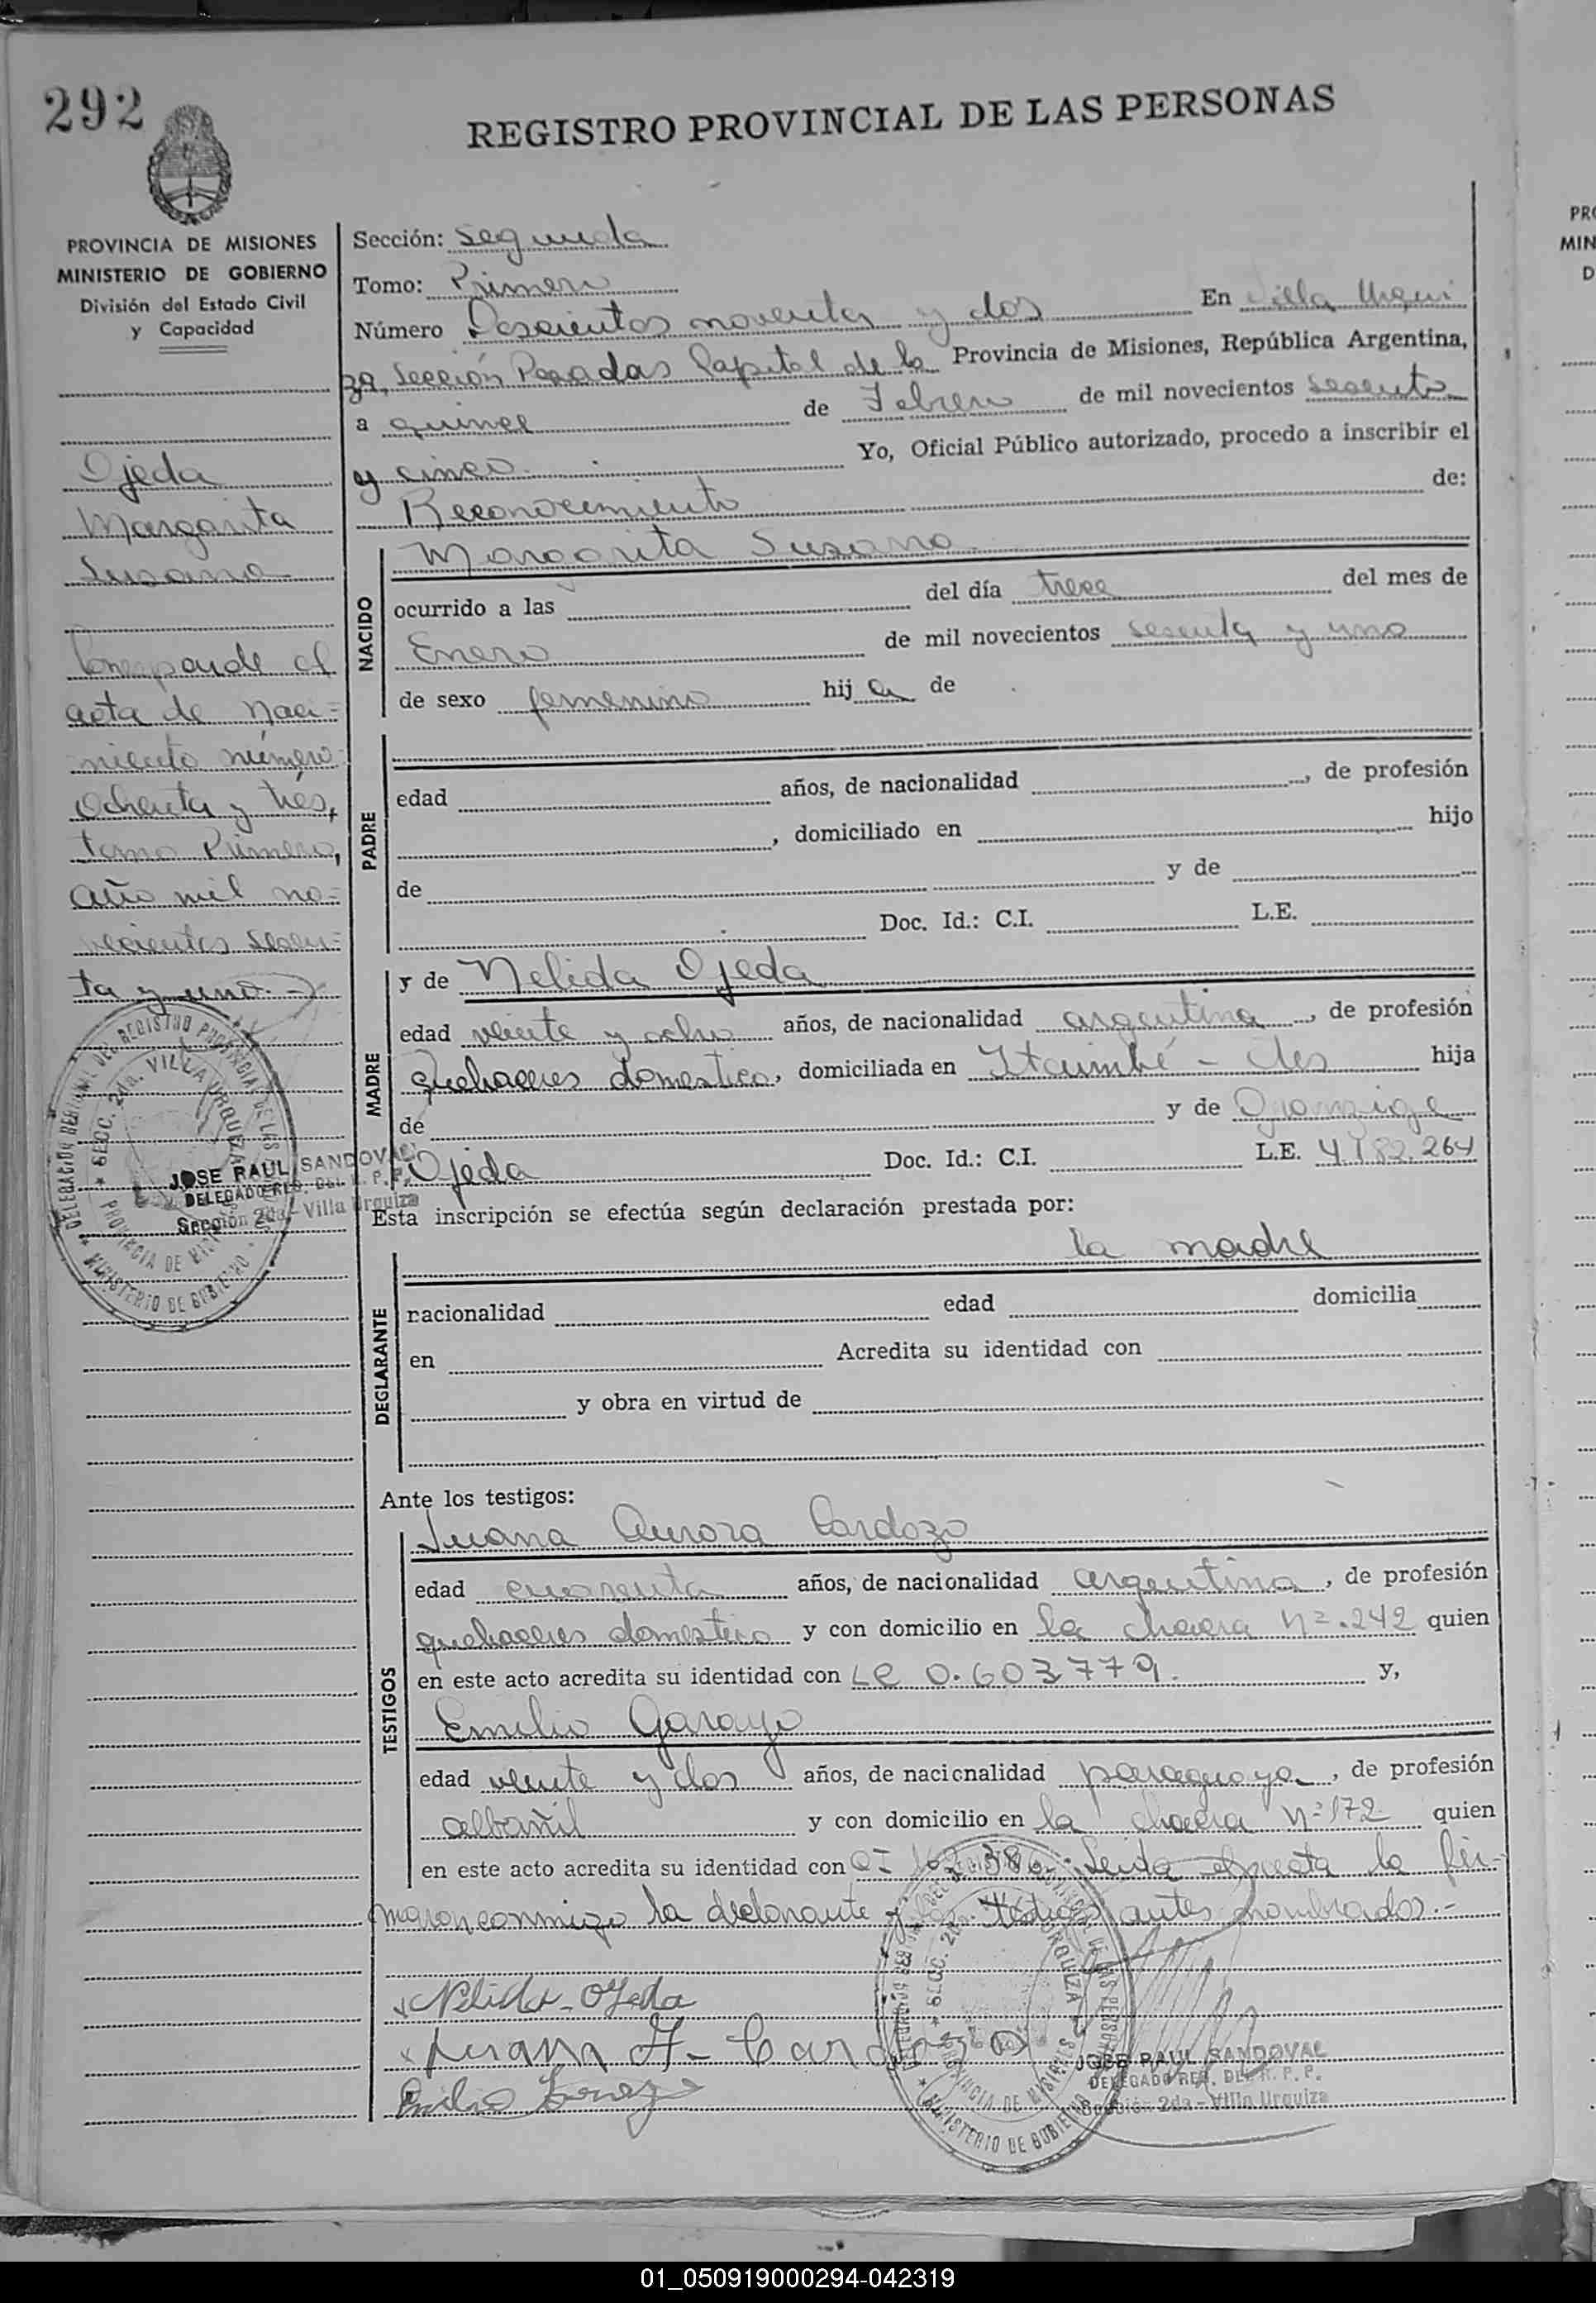 292
REGISTRO PROVINCIAL DE LAS PERSONAS
PROVINCIA DE MISIONES
MINISTERIO DE GOBIERNO
División del Estado Civil
y Capacidad
Ojeda
Margarita
Susana
Corresponde al
acta de naci-
miento número
ochenta y tres,
tomo Primero,
año mil no-
vecientos sesen-
ta y uno.-
JOSE RAUL SANDOVAL
DELEGADO REG. DEL R. P. P.
Sección 2da - Villa Urquiza
Sección: Segunda
Tomo: Primero
Número Doscientos noventa y dos En Villa Urqui
za, Sección Posadas Capital de la Provincia de Misiones, República Argentina,
a quince de Febrero de mil novecientos sesenta
y cinco. Yo, Oficial Público autorizado, procedo a inscribir el
Reconocimiento de:
NACIDO
Margarita Susana
ocurrido a las del día trece del mes de
Enero de mil novecientos sesenta y uno
de sexo femenino hija de
PADRE
edad años, de nacionalidad , de profesión
, domiciliado en hijo
de y de
Doc. Id.: C.I. L.E.
MADRE
y de Nelida Ojeda
edad veinte y ocho años, de nacionalidad argentina, de profesión
quehaceres domestico, domiciliada en Itaimbé - hija
de y de
Ojeda Doc. Id.: C.I. L.E. 4.182.264
Esta inscripción se efectúa según declaración prestada por:
DECLARANTE
la madre
nacionalidad edad domicilia
en Acredita su identidad con
y obra en virtud de
Ante los testigos:
TESTIGOS
Juana Aurora Cardozo
edad cuarenta años, de nacionalidad argentina, de profesión
quehaceres domestico y con domicilio en la chacra Nº.242 quien
en este acto acredita su identidad con LC 0.603779. y,
Emilio Garayo
edad veinte y dos años, de nacionalidad paraguaya, de profesión
albañil y con domicilio en la chacra Nº172 quien
en este acto acredita su identidad con CI Leida el acta la fir-
maron conmigo la declarante y los testigos antes nombrados.-
Nelida - Ojeda
Juana A- Cardozo
JOSE RAUL SANDOVAL
DELEGADO REG. DEL R. P. P.
Sección 2da - Villa Urquiza
01_050919000294-042319